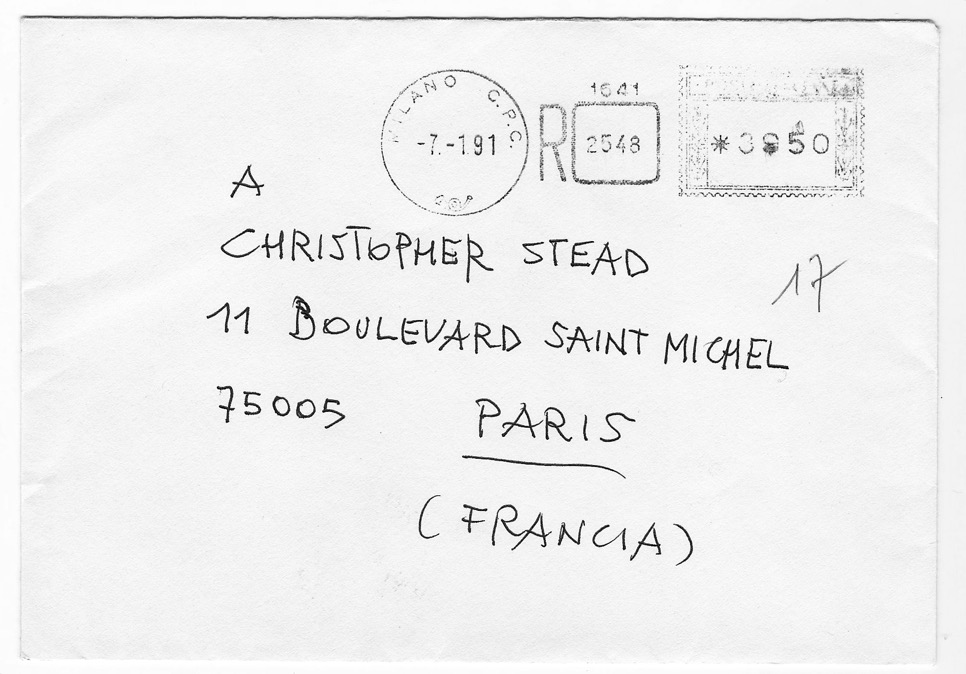 MILANO C.P.C.
-7.-1.91
1641
R 2548
*3850
A
CHRISTOPHER STEAD
17
11 BOULEVARD SAINT MICHEL
75005 PARIS
(FRANCIA)